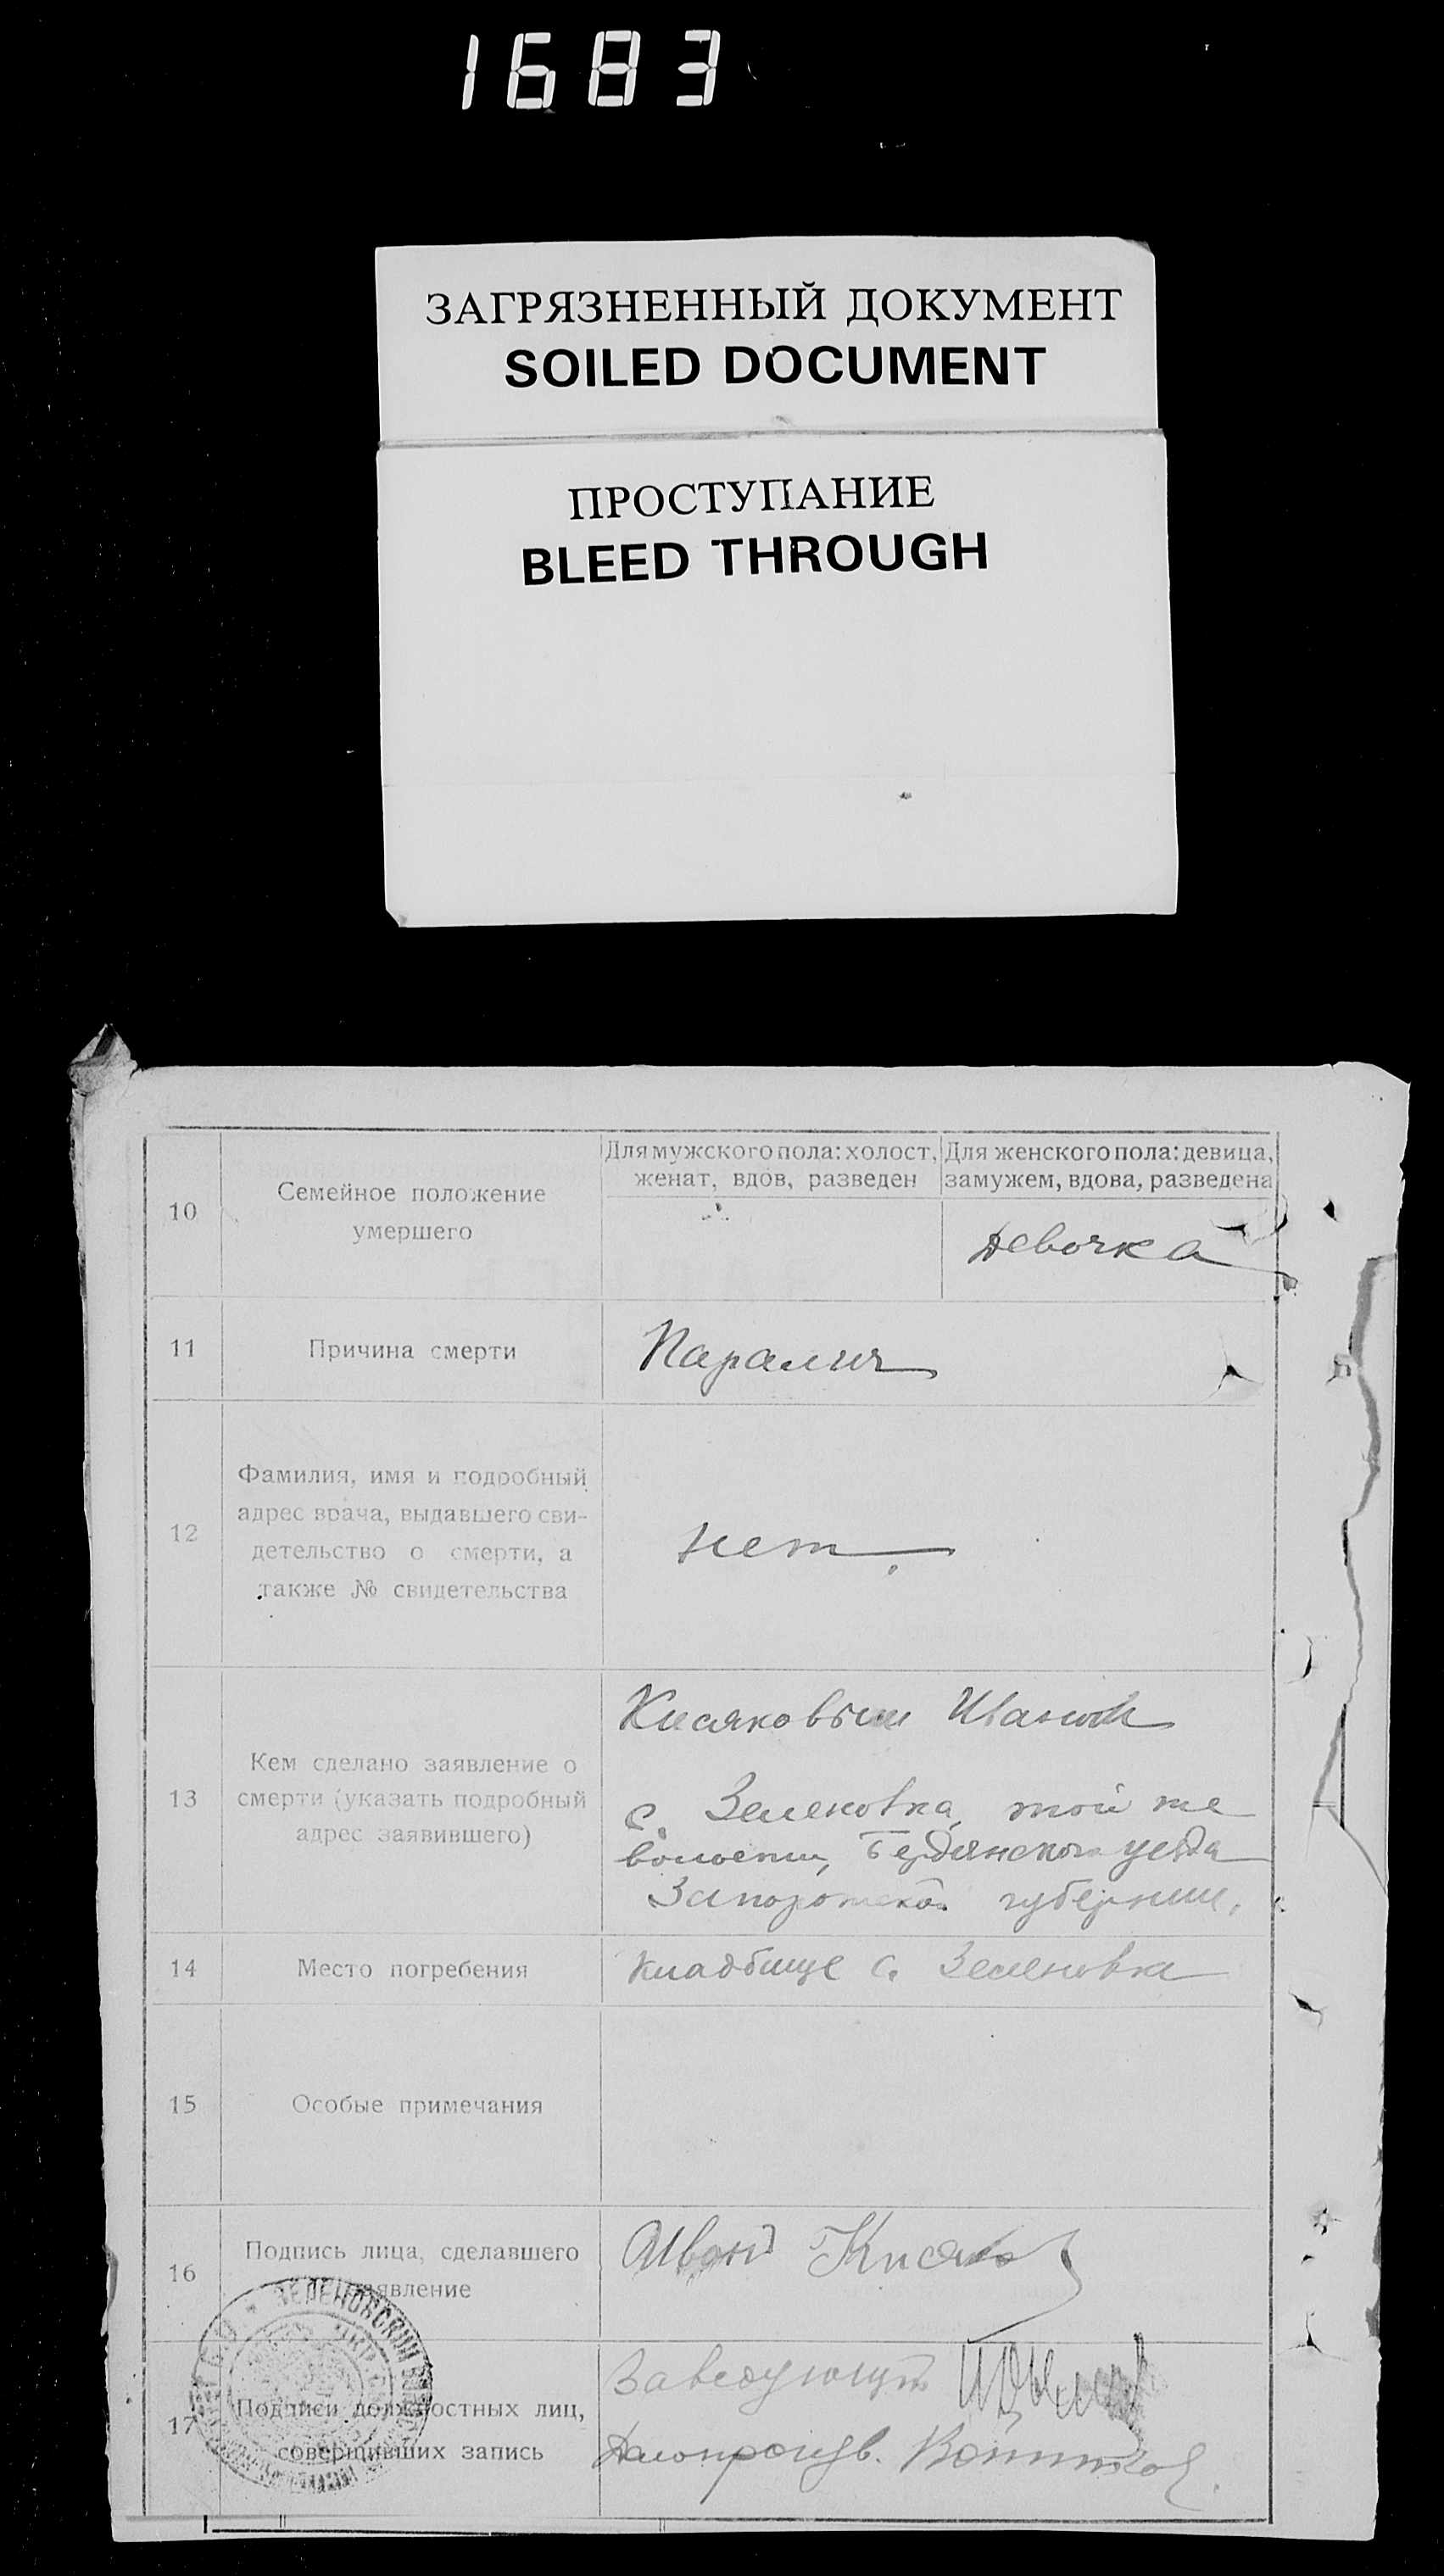 1683
ЗАГРЯЗНЕННЫЙ ДОКУМЕНТ
SOILED DOCUMENT
ПРОСТУПАНИЕ
BLEED THROUGH
10
Семейное положение
умершего
Для мужского пола: холост,
женат, вдов, разведен
Для женского пола: девица,
замужем, вдова, разведена
Девочка
11
Причина смерти
Паралич
12
Фамилия, имя и подробный
адрес врача, выдавшего сви-
детельство о смерти, а
также № свидетельства
нет.
13
Кем сделано заявление о
смерти (указать подробный
адрес заявившего)
Кисяковым Иваном
с. Зеленовка, той же
волости, Бердянского уезда
Запорожской губернии.
14
Место погребения
Кладбище с. Зеленовка
15
Особые примечания
16
Подпись лица, сделавшего
заявление
Иван Кисяков
17
Подписи должностных лиц,
совершивших запись
Заведующий
Делопроизв.
ЗЕЛЕНОВСКИЙ